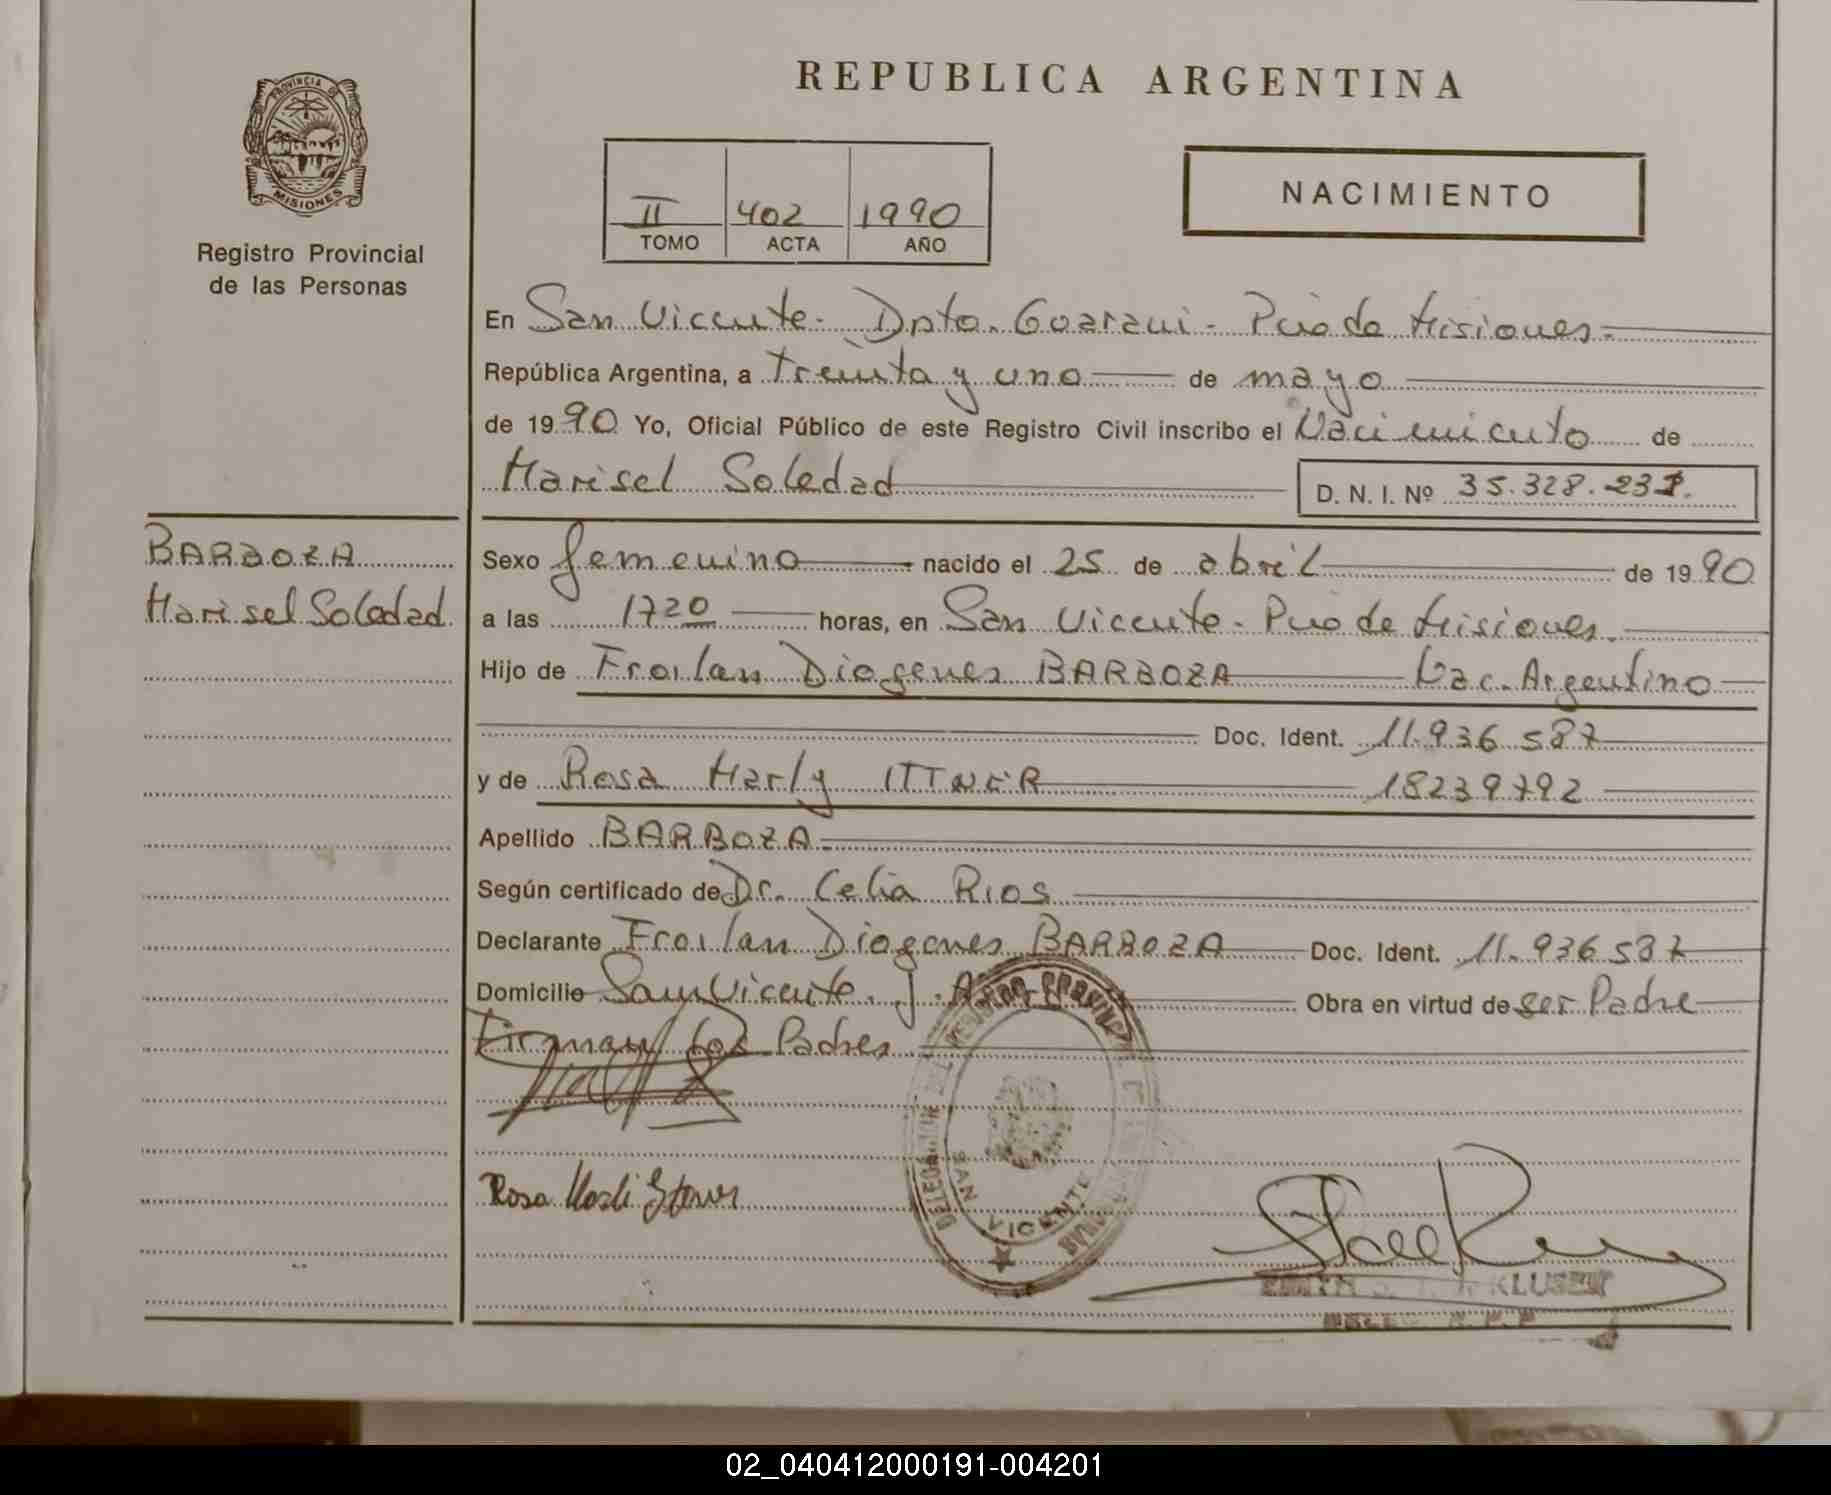 REPUBLICA ARGENTINA
PROVINCIA DE
MISIONES
Registro Provincial
de las Personas
II 402 1990
TOMO ACTA AÑO
NACIMIENTO
En San Vicente - Dpto. Guarani - Pcia de Misiones -
República Argentina, a treinta y uno de mayo
de 1990 Yo, Oficial Público de este Registro Civil inscribo el Nacimiento de
Marisel Soledad D. N. I. Nº 35.328.231.
BARBOZA
Marisel Soledad
Sexo femenino nacido el 25 de abril de 1990
a las 1720 horas, en San Vicente - Pcia de Misiones.
Hijo de Froilan Diogenes BARBOZA Nac. Argentino
Doc. Ident. 11.936.587
y de Rosa Marly ITTNER 18239792
Apellido BARBOZA
Según certificado de Dr. Celia Rios
Declarante Froilan Diogenes BARBOZA Doc. Ident. 11.936.587
Domicilio San Vicente. Obra en virtud de ser Padre
Firman los Padres
Rosa
DELEGACION DEL REGISTRO PROVINCIAL DE LAS PERSONAS
SAN VICENTE
KLUSEN
02_040412000191-004201